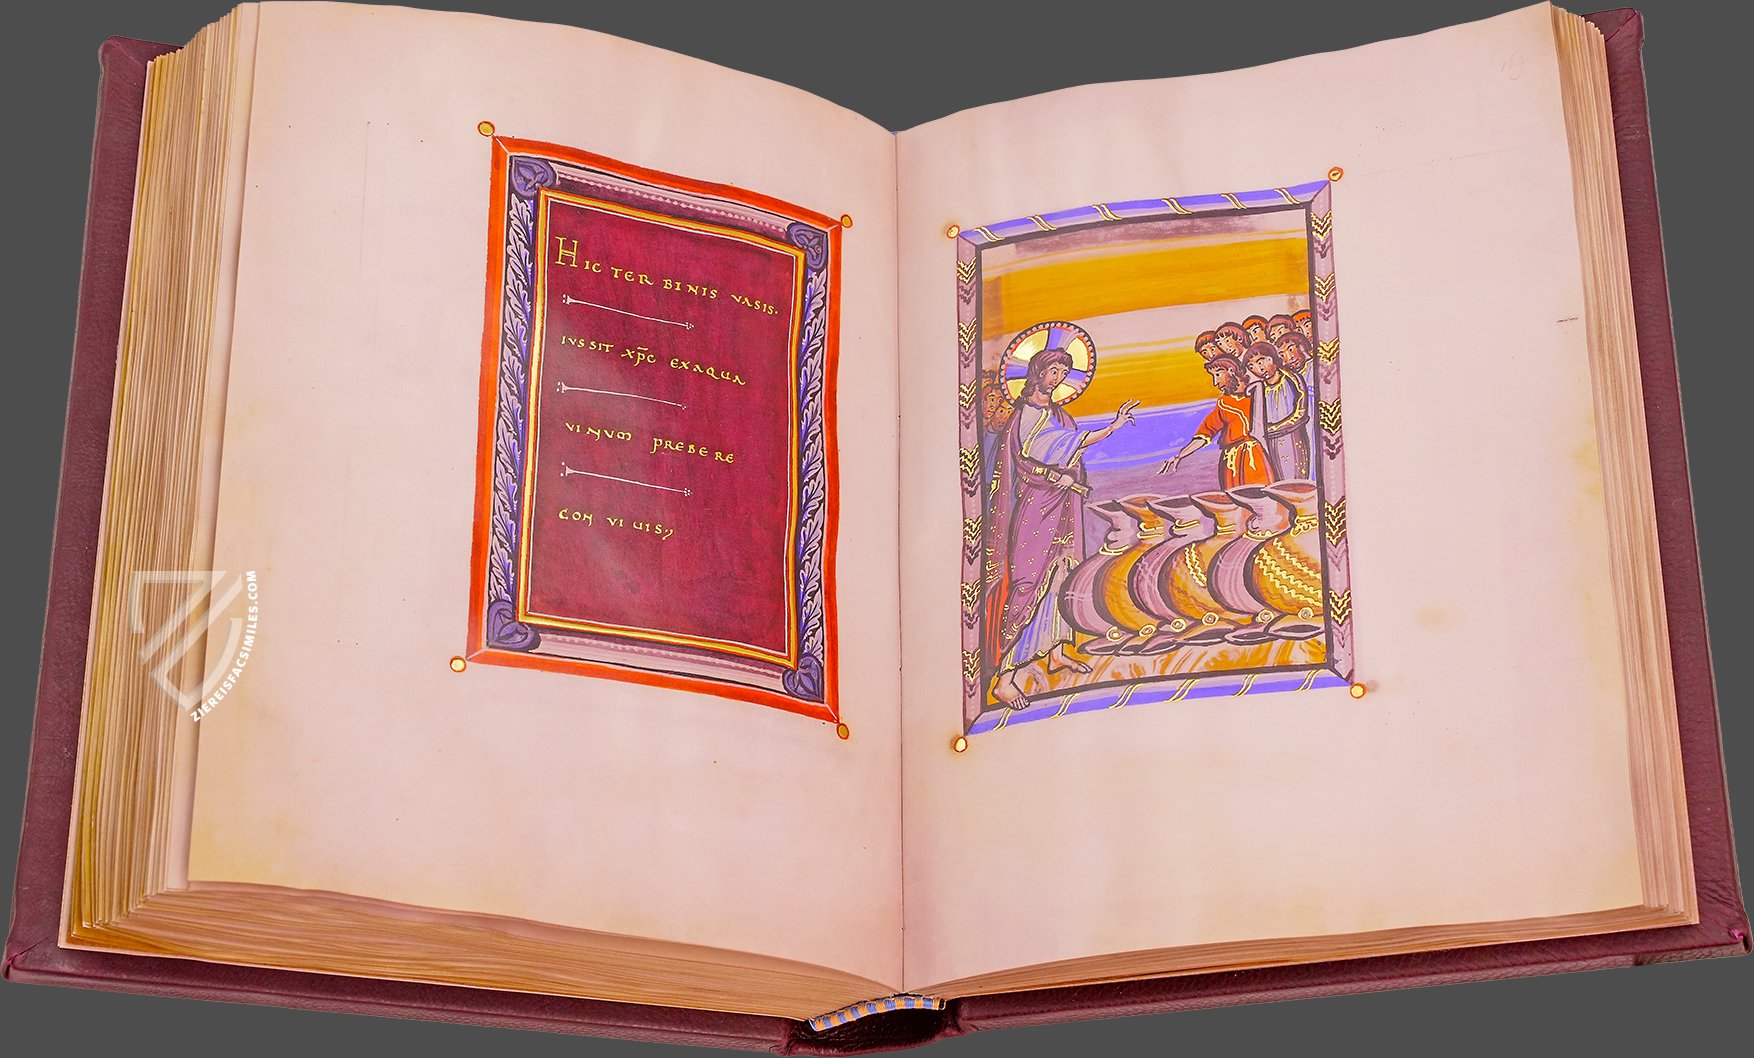 HIC TER BINIS VASIS·
IVSSIT XP̄C EXAQUA
VINVM PREBERE
CONVIUIS;
169
ZIEREISFACSIMILES.COM